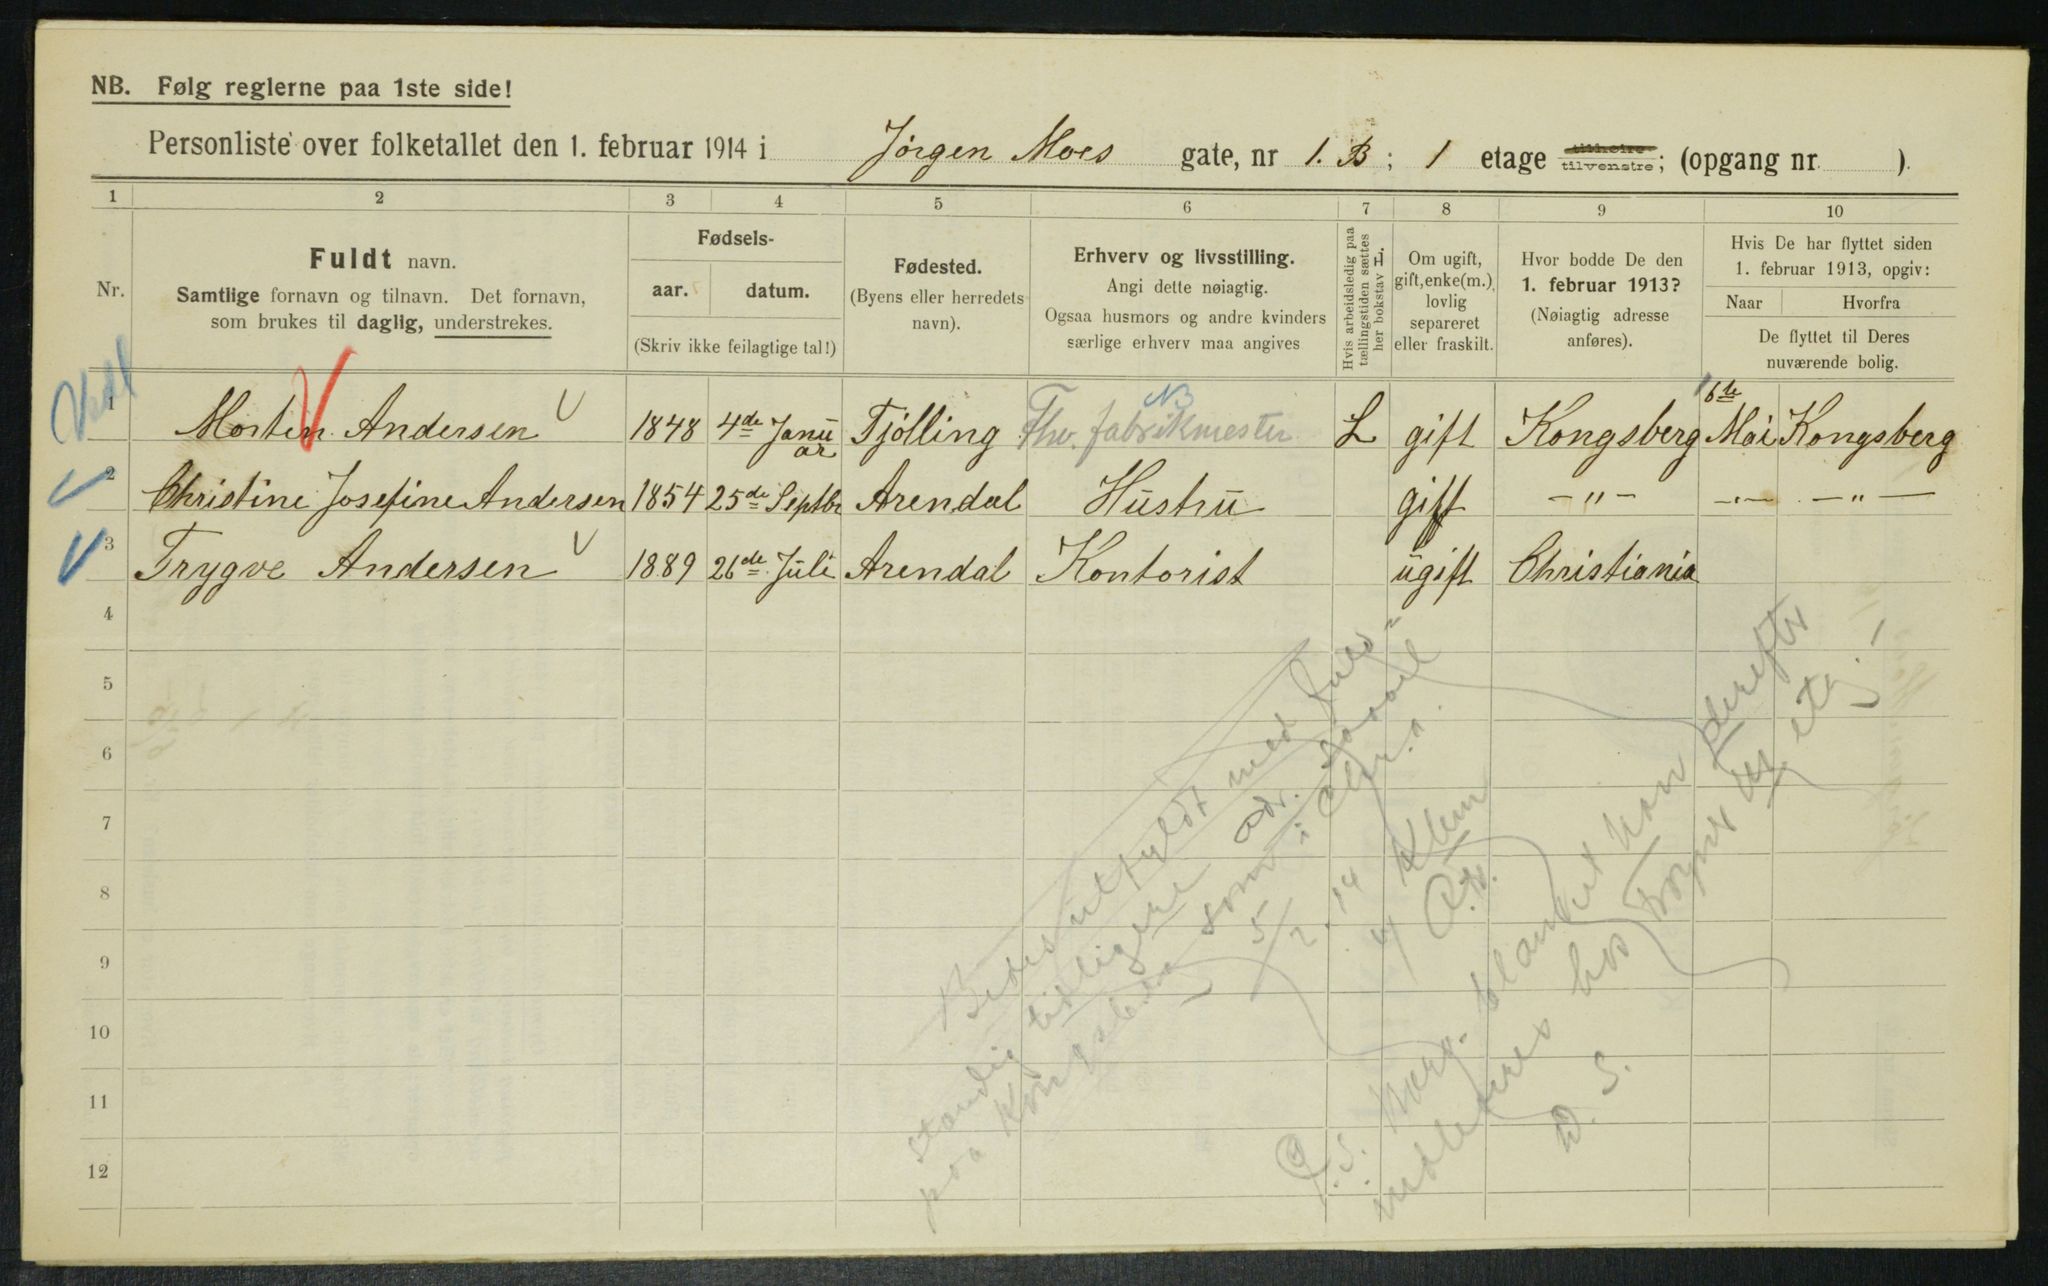 NB. Følg reglerne paa 1ste side!
Personliste over folketallet den 1. februar 1914 i Jørgen Moes gate, nr 1. B; 1 etage tilhøire tilvenstre; (opgang nr )
1 2 3 4 5 6 7 8 9 10
Nr.
Fuldt navn.
Samtlige fornavn og tilnavn. Det fornavn,
som brukes til daglig, understrekes.
Fødsels-
aar. datum.
(Skriv ikke feilagtige tal!)
Fødested.
(Byens eller herredets
navn).
Erhverv og livsstilling.
Angi dette nøiagtig.
Ogsaa husmors og andre kvinders
særlige erhverv maa angives
Hvis arbeidsledig paa
tællingstiden sættes
her bokstav L.
Om ugift,
gift, enke(m.),
lovlig
separeret
eller fraskilt.
Hvor bodde De den
1. februar 1913?
(Nøiagtig adresse
anføres).
Hvis De har flyttet siden
1. februar 1913, opgiv:
Naar Hvorfra
De flyttet til Deres
nuværende bolig.
NB
1 Morten Andersen 1848 4de Januar Tjølling Fhv. fabrikmester L gift Kongsberg 16de Mai Kongsberg
2 Christine Josefine Andersen 1854 25de Septbr Arendal Hustru gift -"- -"- -"-
3 Trygve Andersen 1889 26de Juli Arendal Kontorist ugift Christiania
4
5
6
7
8
9
10
11
12
Bedes utfyldt med fuld-
stændig tidligere adr. saavel
paa Kongsberg som i Chr.a.
5/2.14
Klem
P.S. blanket kan derefter
indleveres hos Frogner etg.
D. S.